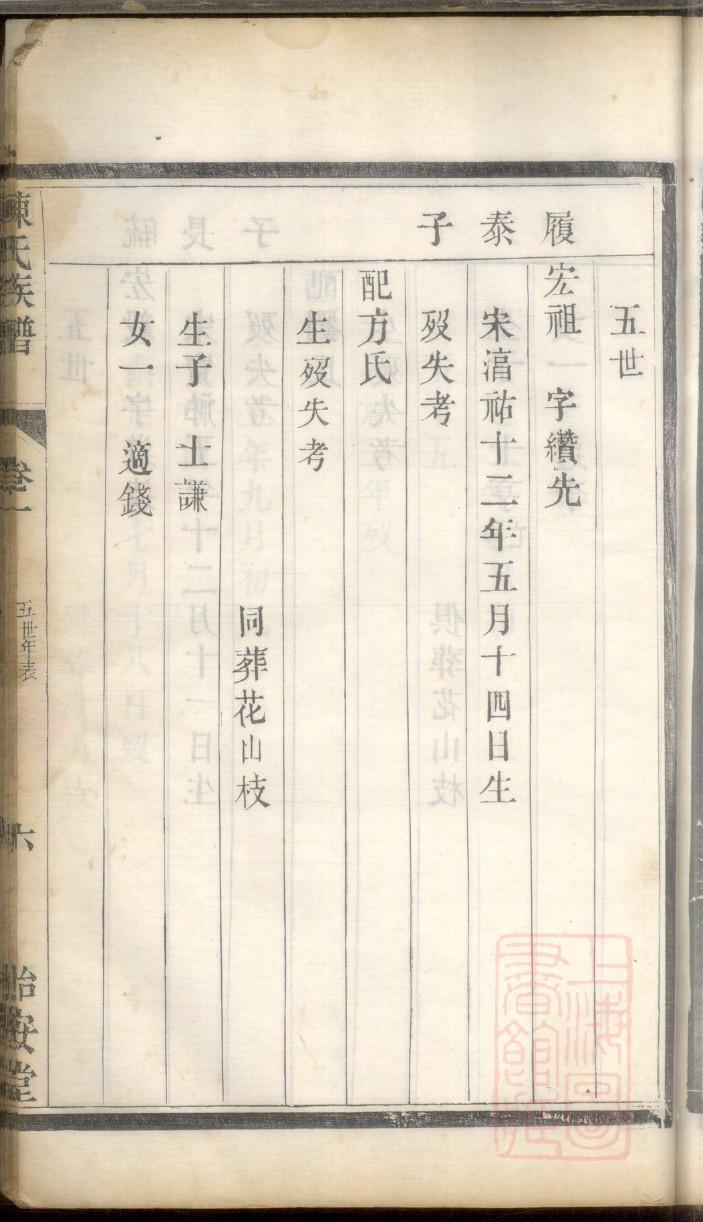 五世
履泰子
宏祖 字纘先
宋湻祐十二年五月十四日生
歿失考
配方氏
生歿失考
同葬花山枝
生子一 士謙
女一 適錢
陳氏族譜 卷一 五世年表 六 怡安堂
上海圖書館藏